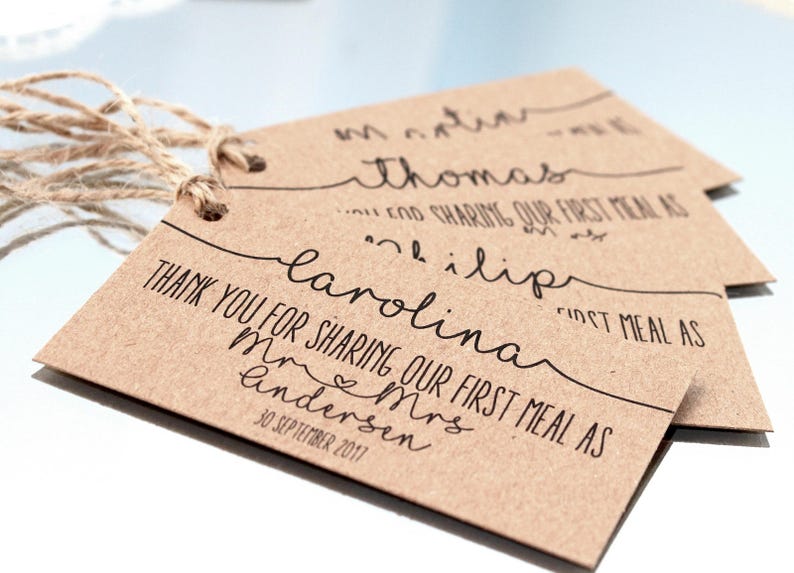 martin
MEAL AS
thomas
YOU FOR SHARING OUR FIRST MEAL AS
philip
FIRST MEAL AS
carolina
THANK YOU FOR SHARING OUR FIRST MEAL AS
Mr ♡ Mrs
Andersen
30 SEPTEMBER 2017